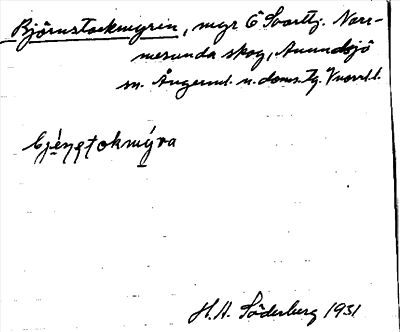 Björnstockmyrin, myr Ö Svarttj. Norr-
mesunda skog, Anundsjö
sn. Ångerml. n. doms. tj. Vnorrl. l.
bjø̀nstokmýra
H. A. Söderberg 1931